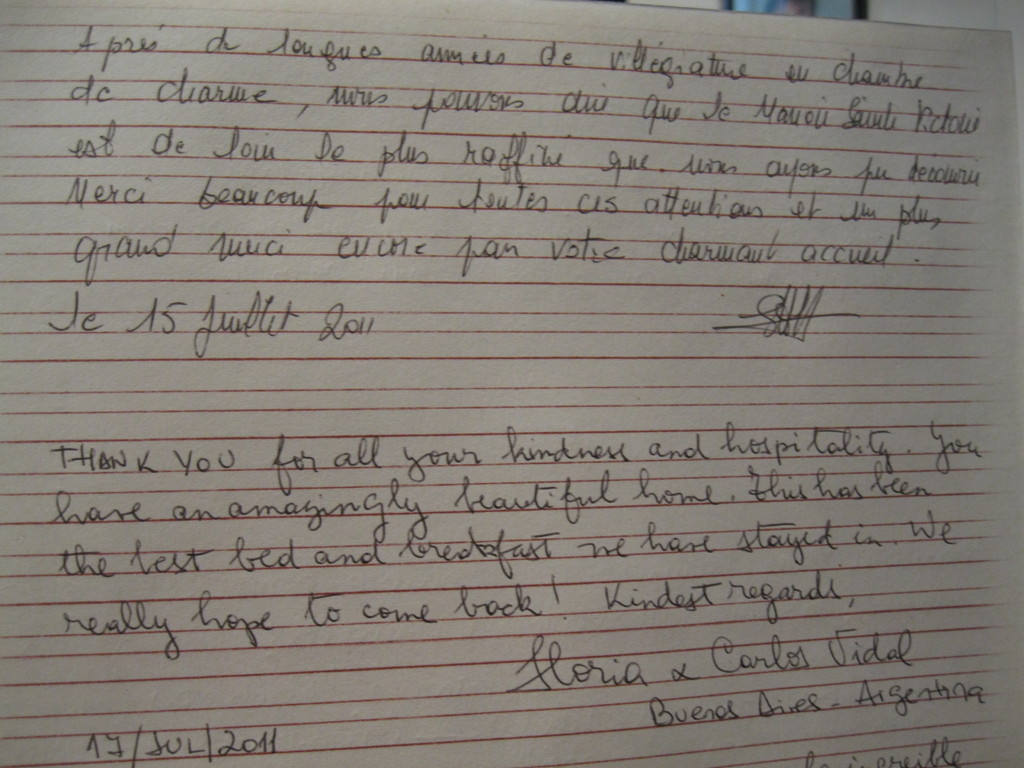 Après de longues années de villégiature en chambre
de charme, nous pouvons dire que le Manoir Sainte
est de loin le plus raffiné que nous ayons pu découvrir
Merci beaucoup pour toutes ces attentions et un plus
grand merci encore par votre charmant accueil.
le 15 Juillet 2011
THANK YOU for all your kindness and hospitality. You
have an amazingly beautiful home. This has been
the best bed and breakfast we have stayed in. We
really hope to come back! Kindest regards,
Gloria & Carlos Vidal
Buenos Aires - Argentina
17/JUL/2011